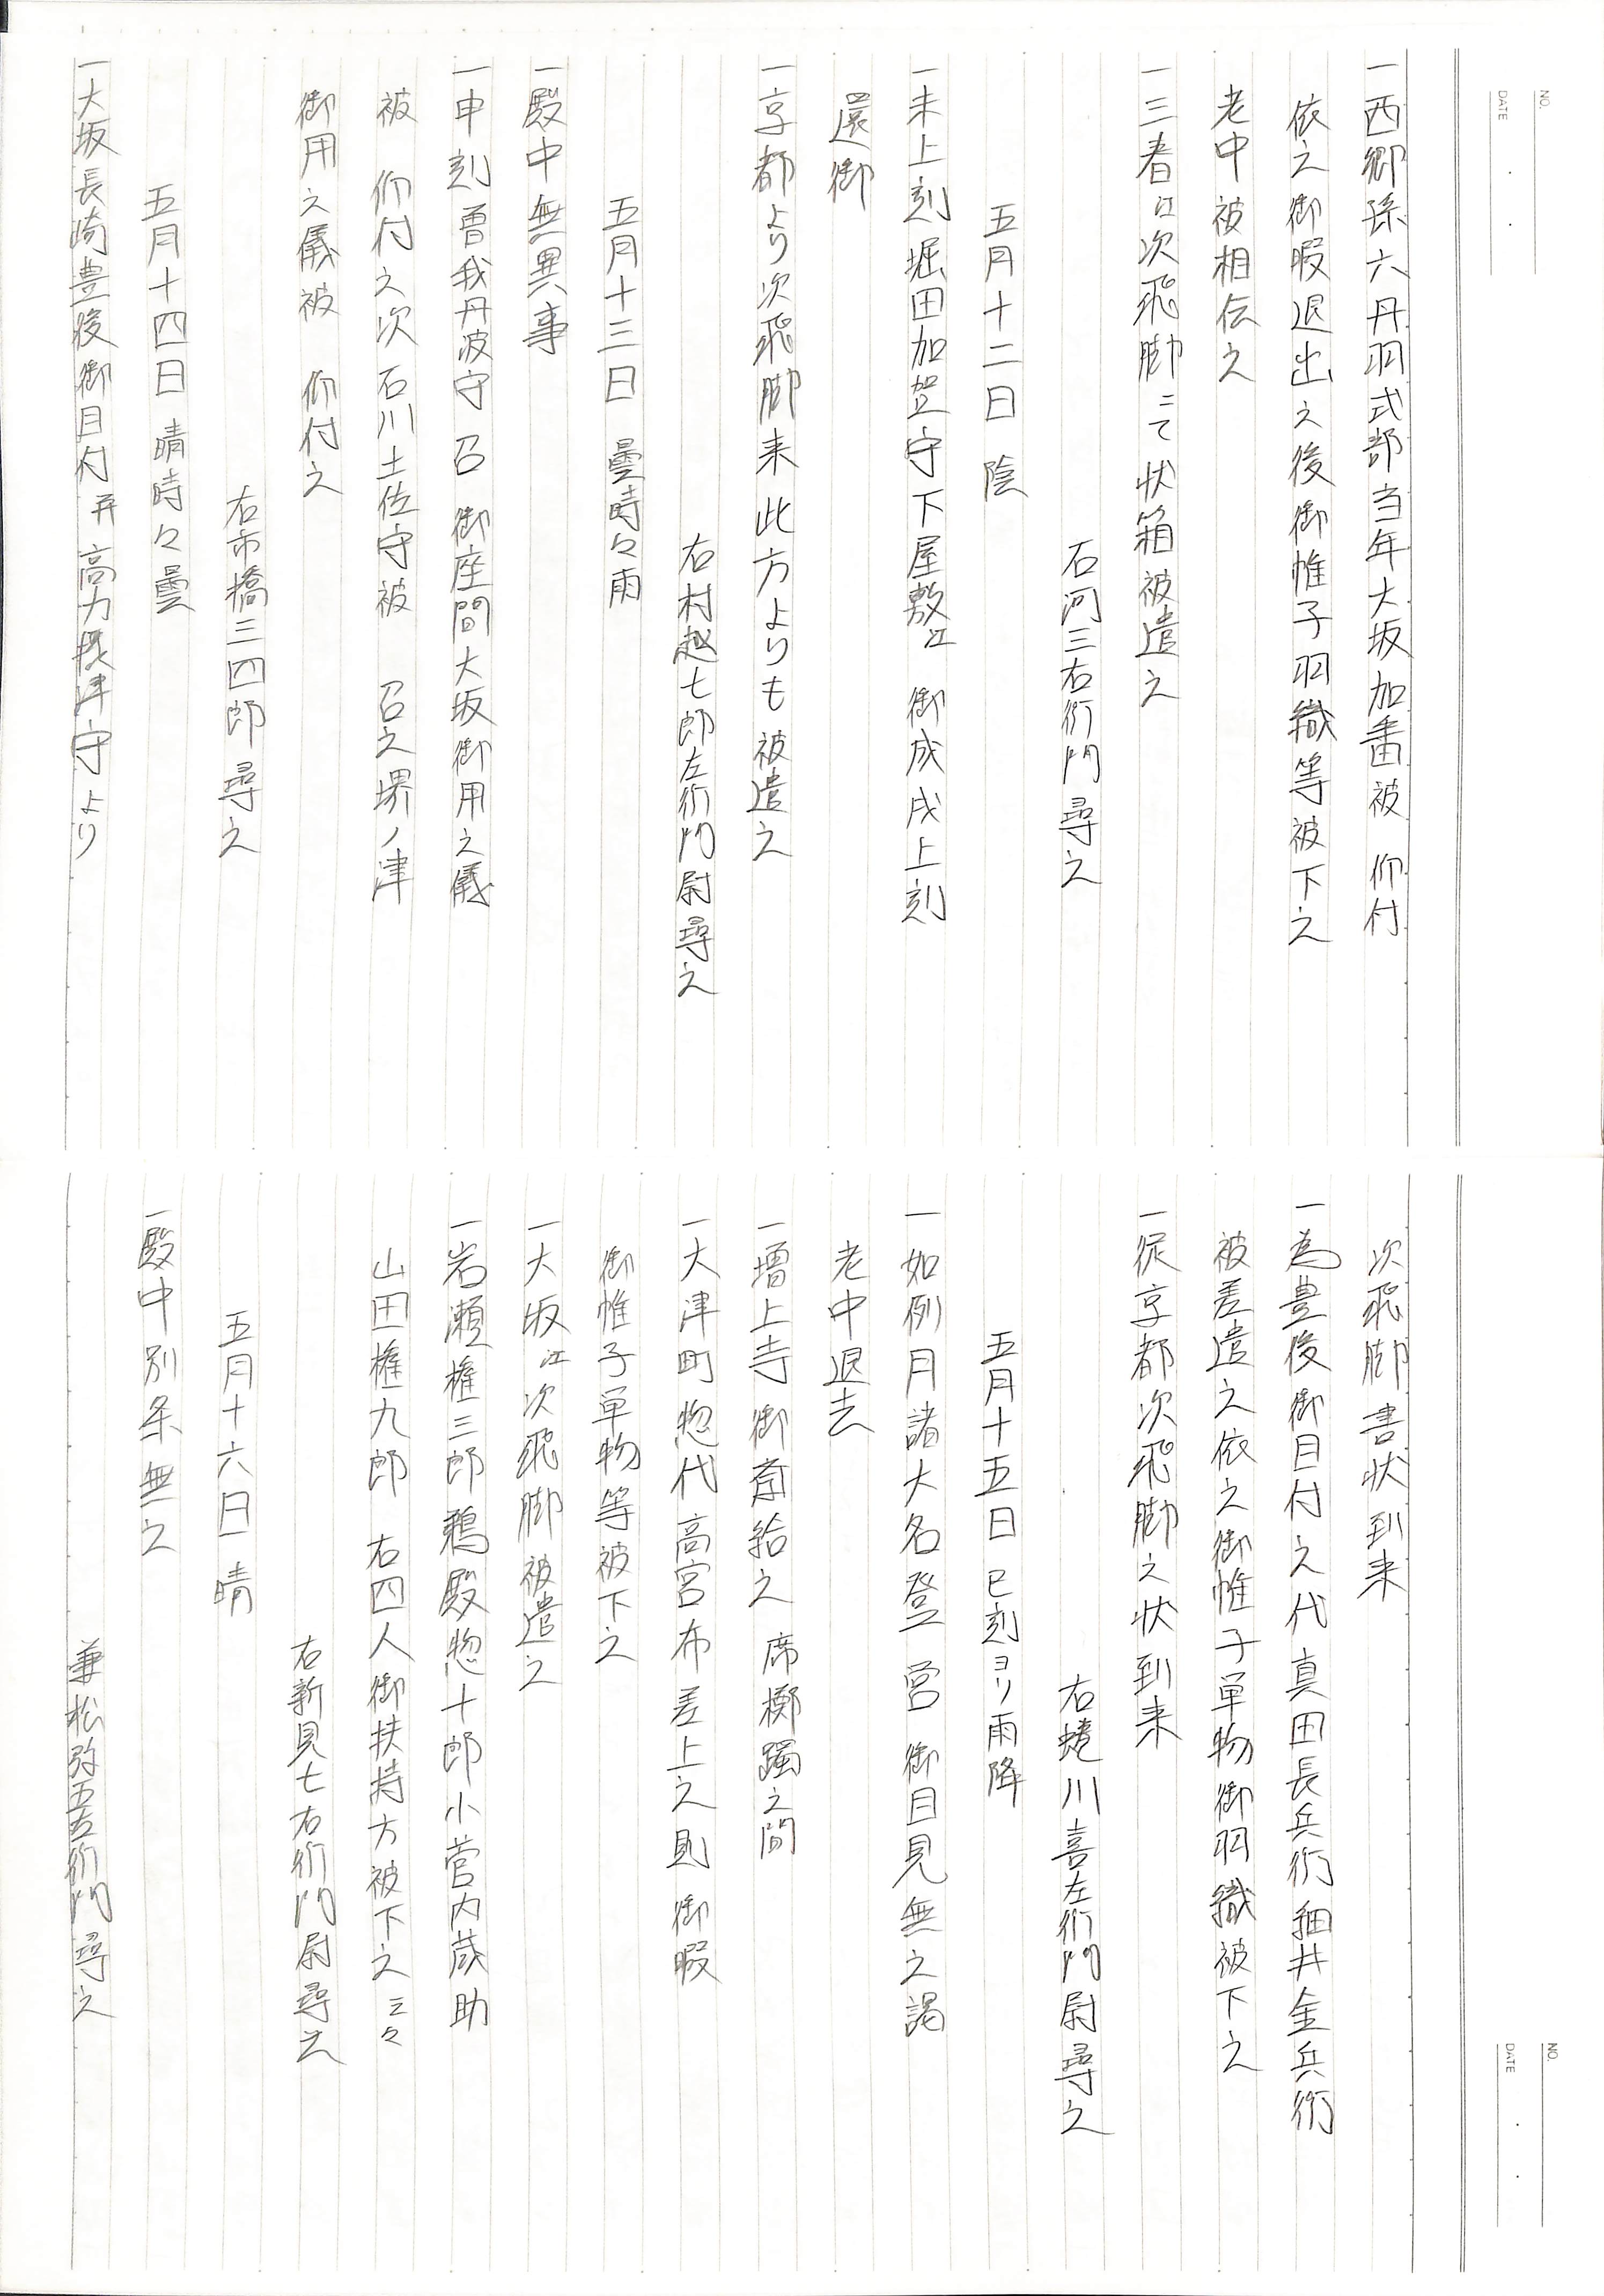 NO.
DATE
一西郷孫六丹羽式部当年大坂加番被　仰付
依之御暇退出之後御帷子羽織等被下之
老中被相伝之
一三春江次飛脚ニて状箱被遣之
石河三右衛門尋之
五月十二日　陰
一未上刻堀田加賀守下屋敷江　御成戌上刻
還御
一京都より次飛脚来此方よりも被遣之
右村越七郎左衛門尉尋之
五月十三日　曇時々雨
一殿中無異事
一申刻曽我丹波守　召　御座間大坂御用之儀
被　仰付之次石川土佐守被　召之堺ノ津
御用之儀被　仰付之
右市橋三四郎尋之
五月十四日　晴時々曇
一大坂長崎豊後御目付并高力摂津守より
NO.
DATE
次飛脚書状到来
一為豊後御目付之代真田長兵衛細井金兵衛
被差遣之依之御帷子単物御羽織被下之
一従京都次飛脚之状到来
右蜷川喜左衛門尉尋之
五月十五日　巳刻ヨリ雨降
一如例月諸大名登　営　御目見無之謁
老中退去
一増上寺御斎給之　席擲躅之間
一大津町惣代高宮布差上之則御暇
御帷子単物等被下之
一大坂江次飛脚被遣之
一岩瀬権三郎鵜殿惣十郎小菅内蔵助
山田権九郎　右四人御扶持方被下之云々
右新見七右衛門尉尋之
五月十六日　晴
一殿中別条無之
兼松弥五左衛門尋之